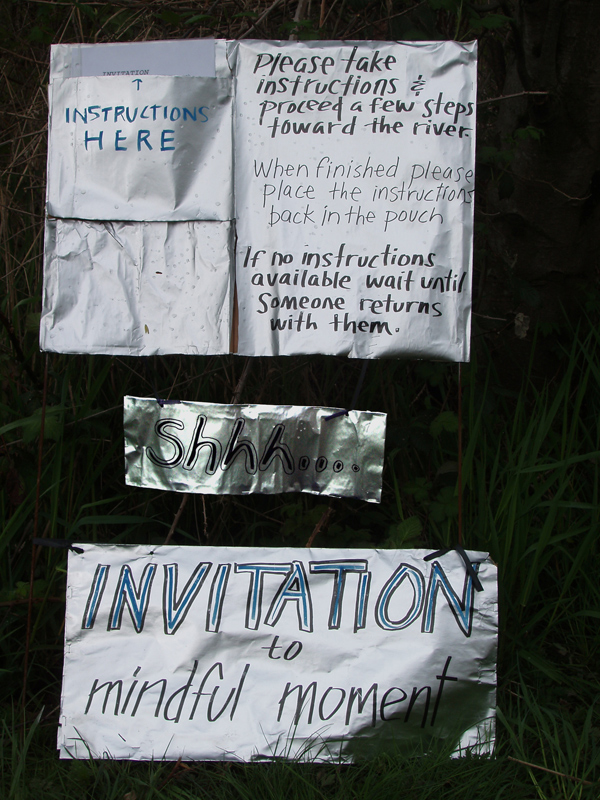 INVITATION
INSTRUCTIONS
HERE
Please take
instructions &
proceed a few steps
toward the river.
When finished please
place the instructions
back in the pouch
If no instructions
available wait until
someone returns
with them.
Shhh....
INVITATION
to
mindful moment